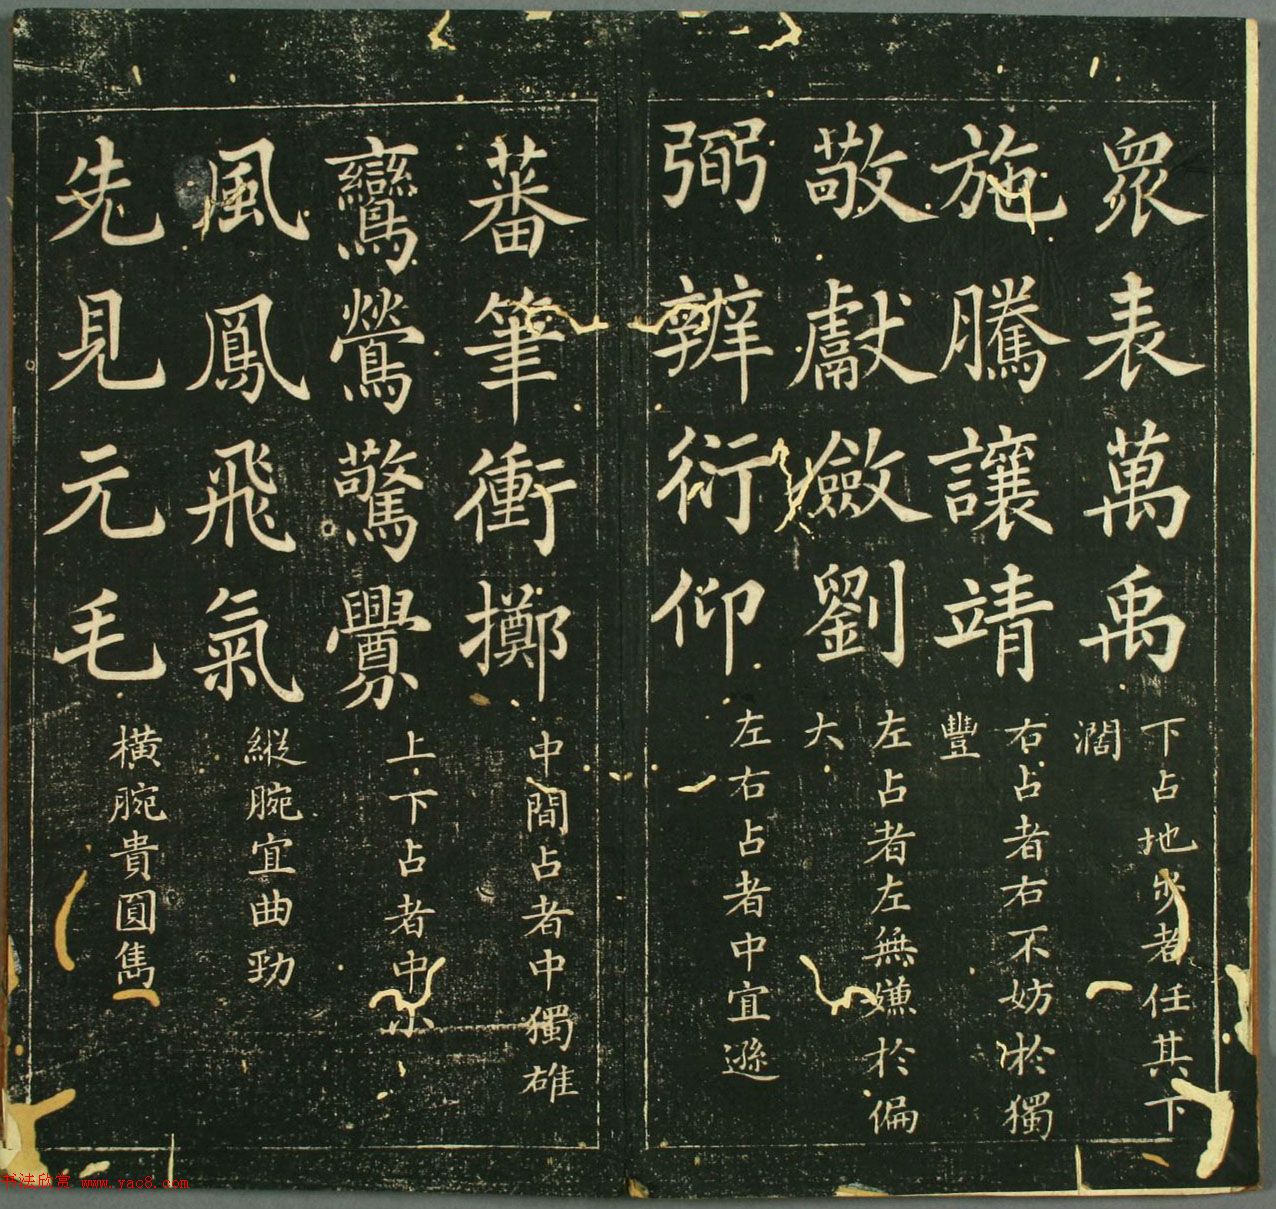 眾表萬禹
下占地步者任其下
闊
施騰讓靖
右占者右不妨於獨
豐
敬獻斂劉
左占者左無嫌於偏
大
弼辨衍仰
左右占者中宜遜
蕃筆衝擲
中間占者中獨雄
鸞鶯驚釁
上下占者中小
風鳳飛氣
縱腕宜曲勁
先見元毛
橫腕貴圓雋
书法欣赏 www.yac8.com